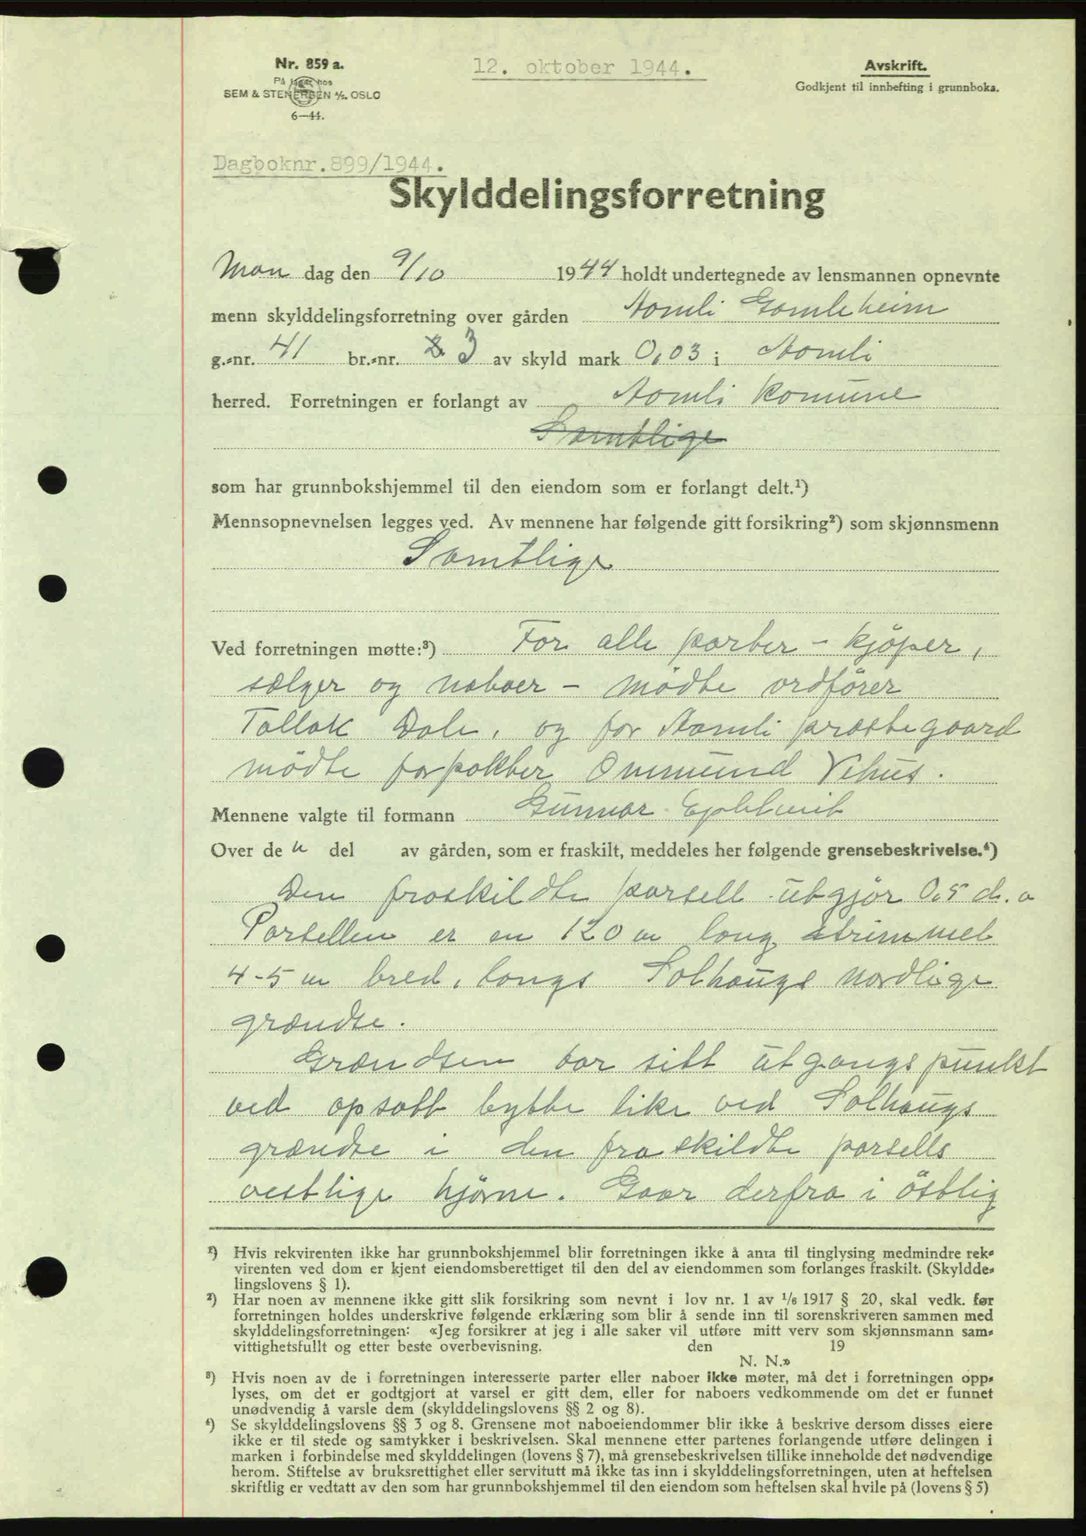 Nr. 859 a.
På lager hos
SEM & STENERSEN A/S. OSLO
6—44.
12. oktober 1944.
Avskrift.
Godkjent til innhefting i grunnboka.
Dagboknr. 899/1944.
Skylddelingsforretning
Man dag den 9/10 1944 holdt undertegnede av lensmannen opnevnte
menn skylddelingsforretning over gården Aamli Gamleheim
g.-nr. 41 br.-nr. 3 av skyld mark 0,03 i Aamli
herred. Forretningen er forlangt av Aamli Komune
Samtlige
som har grunnbokshjemmel til den eiendom som er forlangt delt.¹)
Mennsopnevnelsen legges ved. Av mennene har følgende gitt forsikring²) som skjønnsmenn
Samtlige
Ved forretningen møtte:³) For alle parter – kjöper,
sælger og naboer – mödte ordförer
Tallak Dale, og for Aamli prestegaard
mödte forpakter Ommund Vehus.
Mennene valgte til formann Gunnar
Over de n del av gården, som er fraskilt, meddeles her følgende grensebeskrivelse.⁴)
Den fraskildte parsell utgjör 0,5 d. a
Parsellen er en 120 m lang strimmel
4-5 m bred, langs Solhaugs nordlige
grændse.
Grændsen tar sitt utgangspunkt
ved opsatt bytte like ved Solhaugs
grændse i den fraskildte parsells
vestlige hjörne. Gaar derfra i östlig
¹) Hvis rekvirenten ikke har grunnbokshjemmel blir forretningen ikke å anta til tinglysing medmindre rek-
virenten ved dom er kjent eiendomsberettiget til den del av eiendommen som forlanges fraskilt. (Skyldde-
lingslovens § 1).
²) Har noen av mennene ikke gitt slik forsikring som nevnt i lov nr. 1 av 1/6 1917 § 20, skal vedk. før
forretningen holdes underskrive følgende erklæring som blir å sende inn til sorenskriveren sammen med
skylddelingsforretningen: «Jeg forsikrer at jeg i alle saker vil utføre mitt verv som skjønnsmann sam-
vittighetsfullt og etter beste overbevisning. den 19
N. N.»
³) Hvis noen av de i forretningen interesserte parter eller naboer ikke møter, må det i forretningen opp-
lyses, om det er godtgjort at varsel er gitt dem, eller for naboers vedkommende om det er funnet
unødvendig å varsle dem (skylddelingslovens §§ 2 og 8).
⁴) Se skylddelingslovens §§ 3 og 8. Grensene mot naboeiendommer blir ikke å beskrive dersom disses eiere
ikke er til stede og samtykker i beskrivelsen. Skal mennene etter partenes forlangende utføre delingen i
marken i forbindelse med skylddelingen (lovens § 7), må grensebeskrivelsen tillike inneholde det nødvendige
herom. Stiftelse av bruksrettighet eller servitutt må ikke tas inn i skylddelingsforretningen, uten at heftelsen
skriftlig er vedtatt av den som har grunnbokshjemmel til den eiendom som heftelsen skal hvile på (lovens § 5)